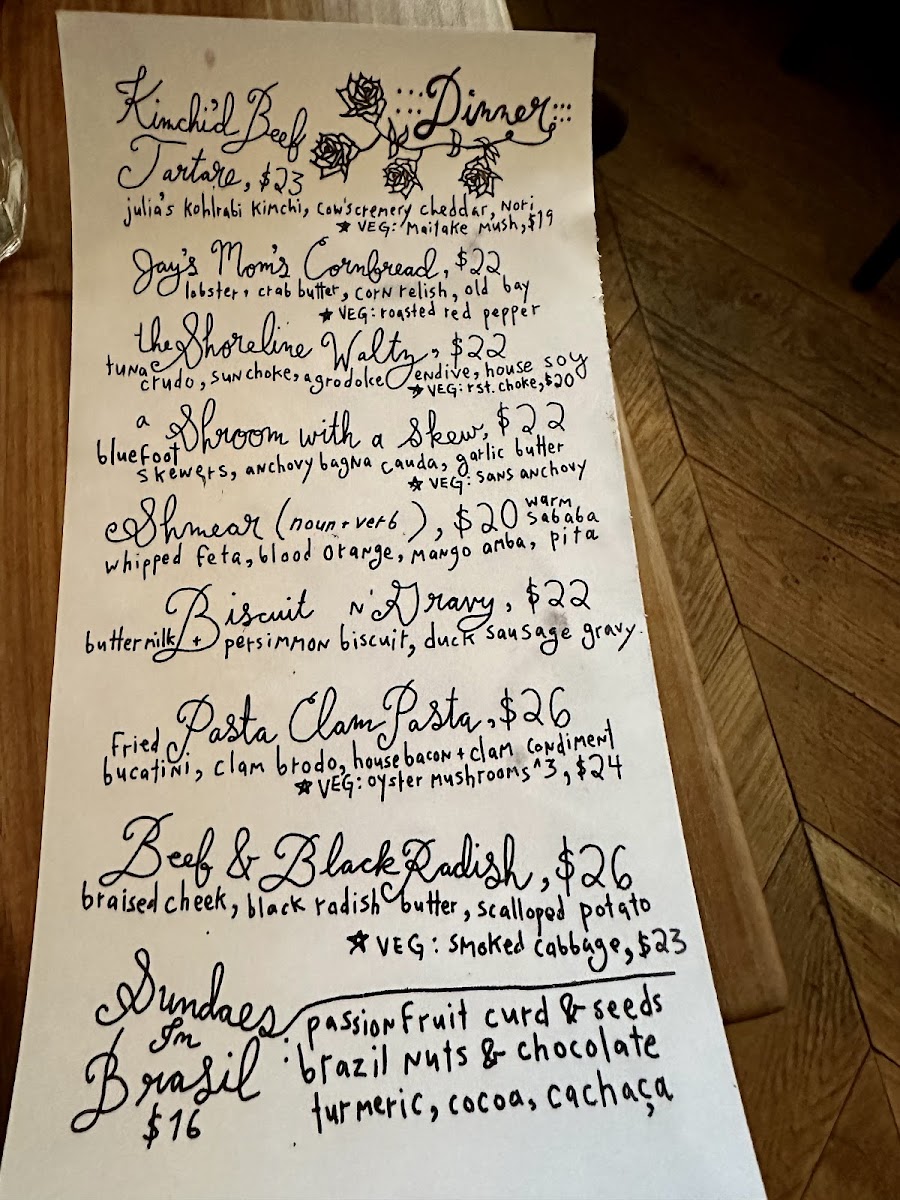 :::Dinner:::
Kimchi'd Beef
Tartare, $23
julia's kohlrabi kimchi, cow's cremery cheddar, nori
★ VEG: Maitake Mush, $19
Jay's Mom's Cornbread, $22
lobster, crab butter, corn relish, old bay
★ VEG: roasted red pepper
the Shoreline Waltz, $22
tuna
crudo, sunchoke, agrodolce endive, house soy
★ VEG: rst. choke, $20
a Shroom with a Skew, $22
bluefoot
skewers, anchovy bagna cauda, garlic butter
★ VEG: sans anchovy
Shmear (noun + verb), $20
warm
sababa
whipped feta, blood orange, mango amba, pita
Biscuit N' Gravy, $22
buttermilk + persimmon biscuit, duck sausage gravy.
Pasta Clam Pasta, $26
Fried
bucatini, clam brodo, house bacon + clam condiment
★ VEG: oyster mushrooms ^3, $24
Beef & Black Radish, $26
braised cheek, black radish butter, scalloped potato
★ VEG: smoked cabbage, $23
Sundaes
In
Brasil
$16
: passionfruit curd & seeds
: brazil nuts & chocolate
turmeric, cocoa, cachaça